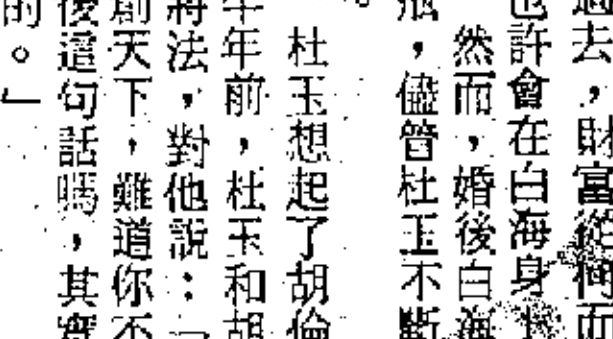 過去，財富從何而
也許會在白海身上
然而，婚後白海
瓶，儘管杜玉不斷
。
杜玉想起了胡倫
年前，杜玉和胡
將法，對他說：「
創天下，難道你不
後這句話嗎，其實
的。」